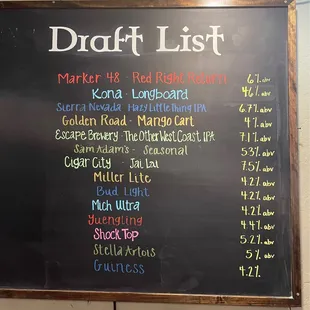 Draft List
Marker 48 - Red Right 6% abv
Kona - Longboard 4.6% abv
Sierra Nevada - Hazy Little Thing IPA 6.7% abv
Golden Road - Mango Cart 4% abv
Escape Brewery - The Other West Coast IPA 7.1% abv
Sam Adam's - Seasonal 5.3% abv
Cigar City - Jai Lai 7.5% abv
Miller Lite 4.2% abv
Bud Light 4.2% abv
Mich Ultra 4.2% abv
Yuengling 4.4% abv
Shock Top 5.2% abv
Stella Artois 5% abv
Guiness 4.2%